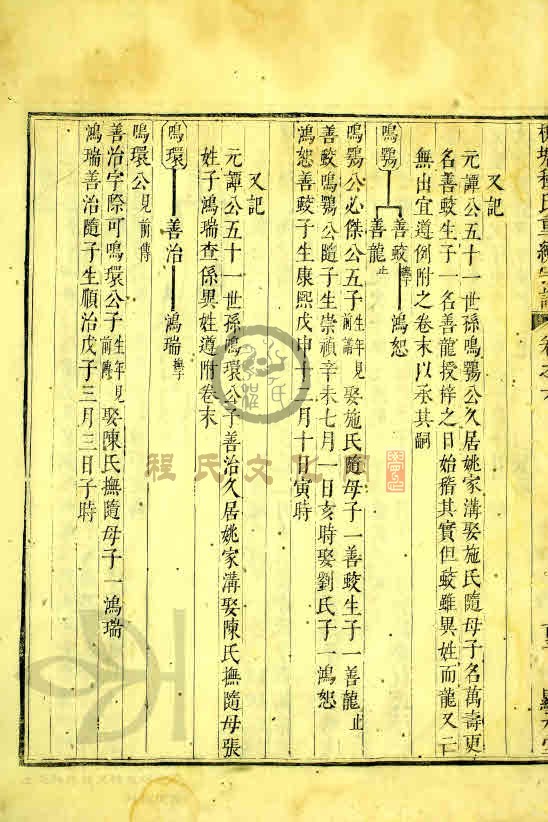 又記
元譚公五十一世孫鳴鸚公久居姚家溝娶施氏隨母子名萬壽更
名善蛟生子一名善龍授梓之日始稽其實但蛟雖異姓而龍又
無出宜遵例附之卷末以承其嗣
鳴鸚 善蛟 鴻恕
善龍 止
鳴鸚公必傑公五子生年見前譜娶施氏隨母子一善蛟生子一善龍止
善蛟鳴鸚公隨子生崇禎辛未七月一日亥時娶劉氏子一鴻恕
鴻恕善蛟子生康熙戊申十二月十日寅時
又記
元譚公五十一世孫鳴環公子善治久居姚家溝娶陳氏撫隨母張
姓子鴻瑞查係異姓遵附卷末
鳴環 善治 鴻瑞
鳴環公見前傳
善治字際可鳴環公子生年見前傳娶陳氏撫隨母子一鴻瑞
鴻瑞善治隨子生順治戊子三月三日子時
程氏文化網